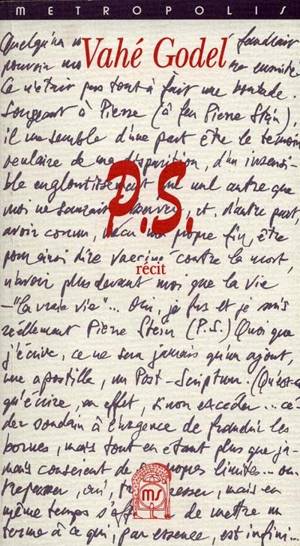 METROPOLIS
Vahé Godel
P.S.
récit
Quelqu'un
pouvoir me ensuite.
Ce n'était pas tout à fait une boutade.
Songeant à Pierre (à feu Pierre Stein),
il me semble d'une part être le témoin
oculaire de ma disparition, d'un insensi-
ble engloutissement que nul autre que
moi ne saurait et, d'autre part
avoir connu, vécu ma propre fin, être
pour ainsi dire vacciné contre la mort,
n'avoir plus devant moi que la vie
— "la vraie vie"... Oui, je fus et je suis
réellement Pierre Stein (P.S.) Quoi que
j'écrive, ce ne sera jamais qu'un ajout,
une apostille, un Post-Scriptum. (Qu'est-ce
qu'écrire, en effet, sinon excéder... cé-
der soudain à l'urgence de franchir les
bornes, mais tout en étant plus que ja-
mais conscient de propres limites... ou-
trepasser, oui, mais en
même temps de mettre un
terme à ce qui, par essence, est infini...
ms